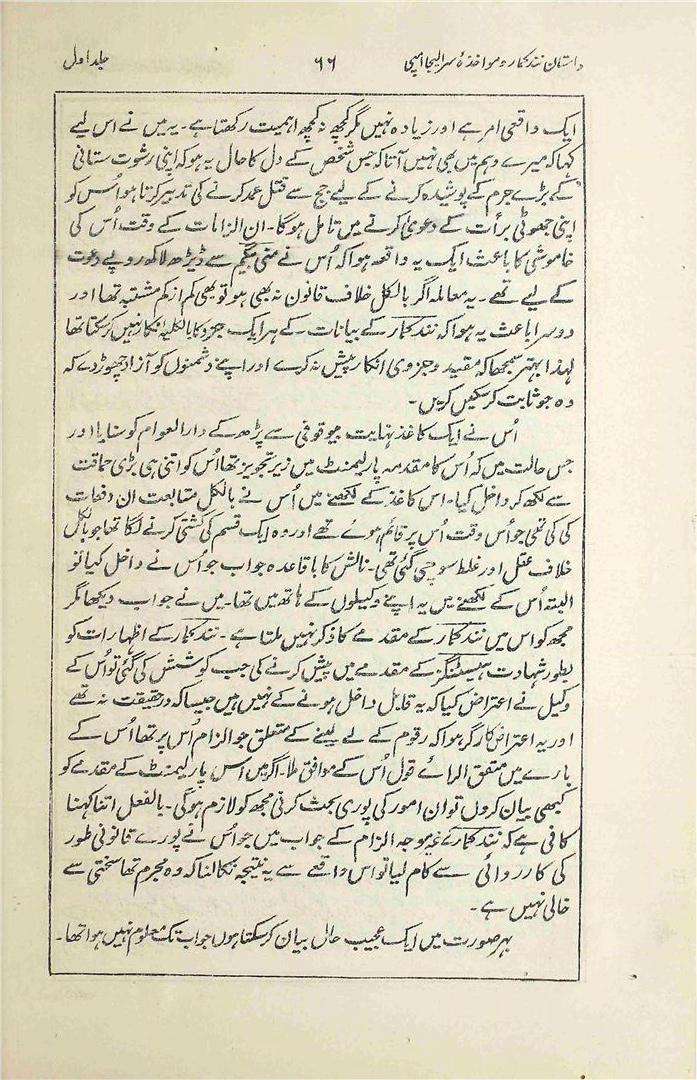 داستان نندکمار و مواخذۂ سر الیجا امپی ۶۶ جلد اول
ایک واقعی امر ہے اور زیادہ نہیں مگر کچھ نہ کچھ اہمیت رکھتا ہے۔ یہ میں نے اس لیے
کہا کہ میرے وہم میں بھی نہیں آتا کہ جس شخص کے دل کا حال یہ ہو کہ اپنی رشوت ستانی
کے بڑے جرم کے پوشیدہ کرنے کے لیے جج سے قتل عمد کرنے کی تدبیر کرتا ہو اُس کو
اپنی جھوٹی برأت کے دعویٰ کرنے میں تامل ہوگا۔ ان الزامات کے وقت اُس کی
خاموشی کا باعث ایک یہ واقعہ ہوا کہ اُس نے منی بیگم سے ڈیڑھ لاکھ روپے دعوت
کے لیے تھے۔ یہ معاملہ اگر بالکل خلاف قانون نہ بھی ہو تو بھی کم از کم مشتبہ تھا اور
دوسرا باعث یہ ہوا کہ نندکمار کے بیانات کے ہر ایک جزو کا بالکلیہ انکار نہیں کر سکتا تھا
لہذا بہتر سمجھا کہ مقید و جزوی انکار پیش نہ کرے اور اپنے دشمنوں کو آزاد چھوڑ دے کہ
وہ جو ثابت کر سکیں کریں۔
اُس نے ایک کاغذ نہایت بیوقوفی سے پڑھ کے دارالعوام کو سنایا اور
جس حالت میں کہ اُس کا مقدمہ پارلیمنٹ میں زیر تجویز تھا اُس کو اتنی ہی بڑی حماقت
سے لکھ کر داخل کیا۔ اس کاغذ کے لکھنے میں اُس نے بالکل متابعت ان دفعات
کی کی تھی جو اُس وقت اُس پر قائم ہوئے تھے اور وہ ایک قسم کی کشتی کرنے لگا تھا جو بالکل
خلاف عقل اور غلط سوچی گئی تھی۔ نالش کا باقاعدہ جواب جو اُس نے داخل کیا تو
البتہ اُس کے لکھنے میں یہ اپنے وکیلوں کے ہاتھ میں تھا۔ میں نے جواب دیکھا مگر
مجھ کو اس میں نندکمار کے مقدمے کا ذکر نہیں ملتا ہے۔ نندکمار کے اظہارات کو
بطور شہادت ہیسٹنگز کے مقدمے میں پیش کرنے کی جب کوشش کی گئی تو اُس کے
وکیل نے اعتراض کیا کہ یہ قابل داخل ہونے کے نہیں ہیں جیسا کہ درحقیقت نہ تھے
اور یہ اعتراض کارگر ہوا کہ رقوم کے لے لینے کے متعلق جو الزام اُس پر تھا اُس کے
بارے میں متفق الرائے قول اُس کے موافق ملا۔ اگر میں اس پارلیمنٹ کے مقدمے کو
کبھی بیان کروں تو ان امور کی پوری بحث کرنی مجھ کو لازم ہوگی۔ بالفعل اتنا کہنا
کافی ہے کہ نندکمار کے غیر موجہ الزام کے جواب میں جو اُس نے پورے قانونی طور
کی کارروائی سے کام لیا تو اس واقعے سے یہ نتیجہ نکالنا کہ وہ مجرم تھا سختی سے
خالی نہیں ہے۔
بہر صورت میں ایک عجیب حال بیان کر سکتا ہوں جو اب تک معلوم نہیں ہوا تھا۔